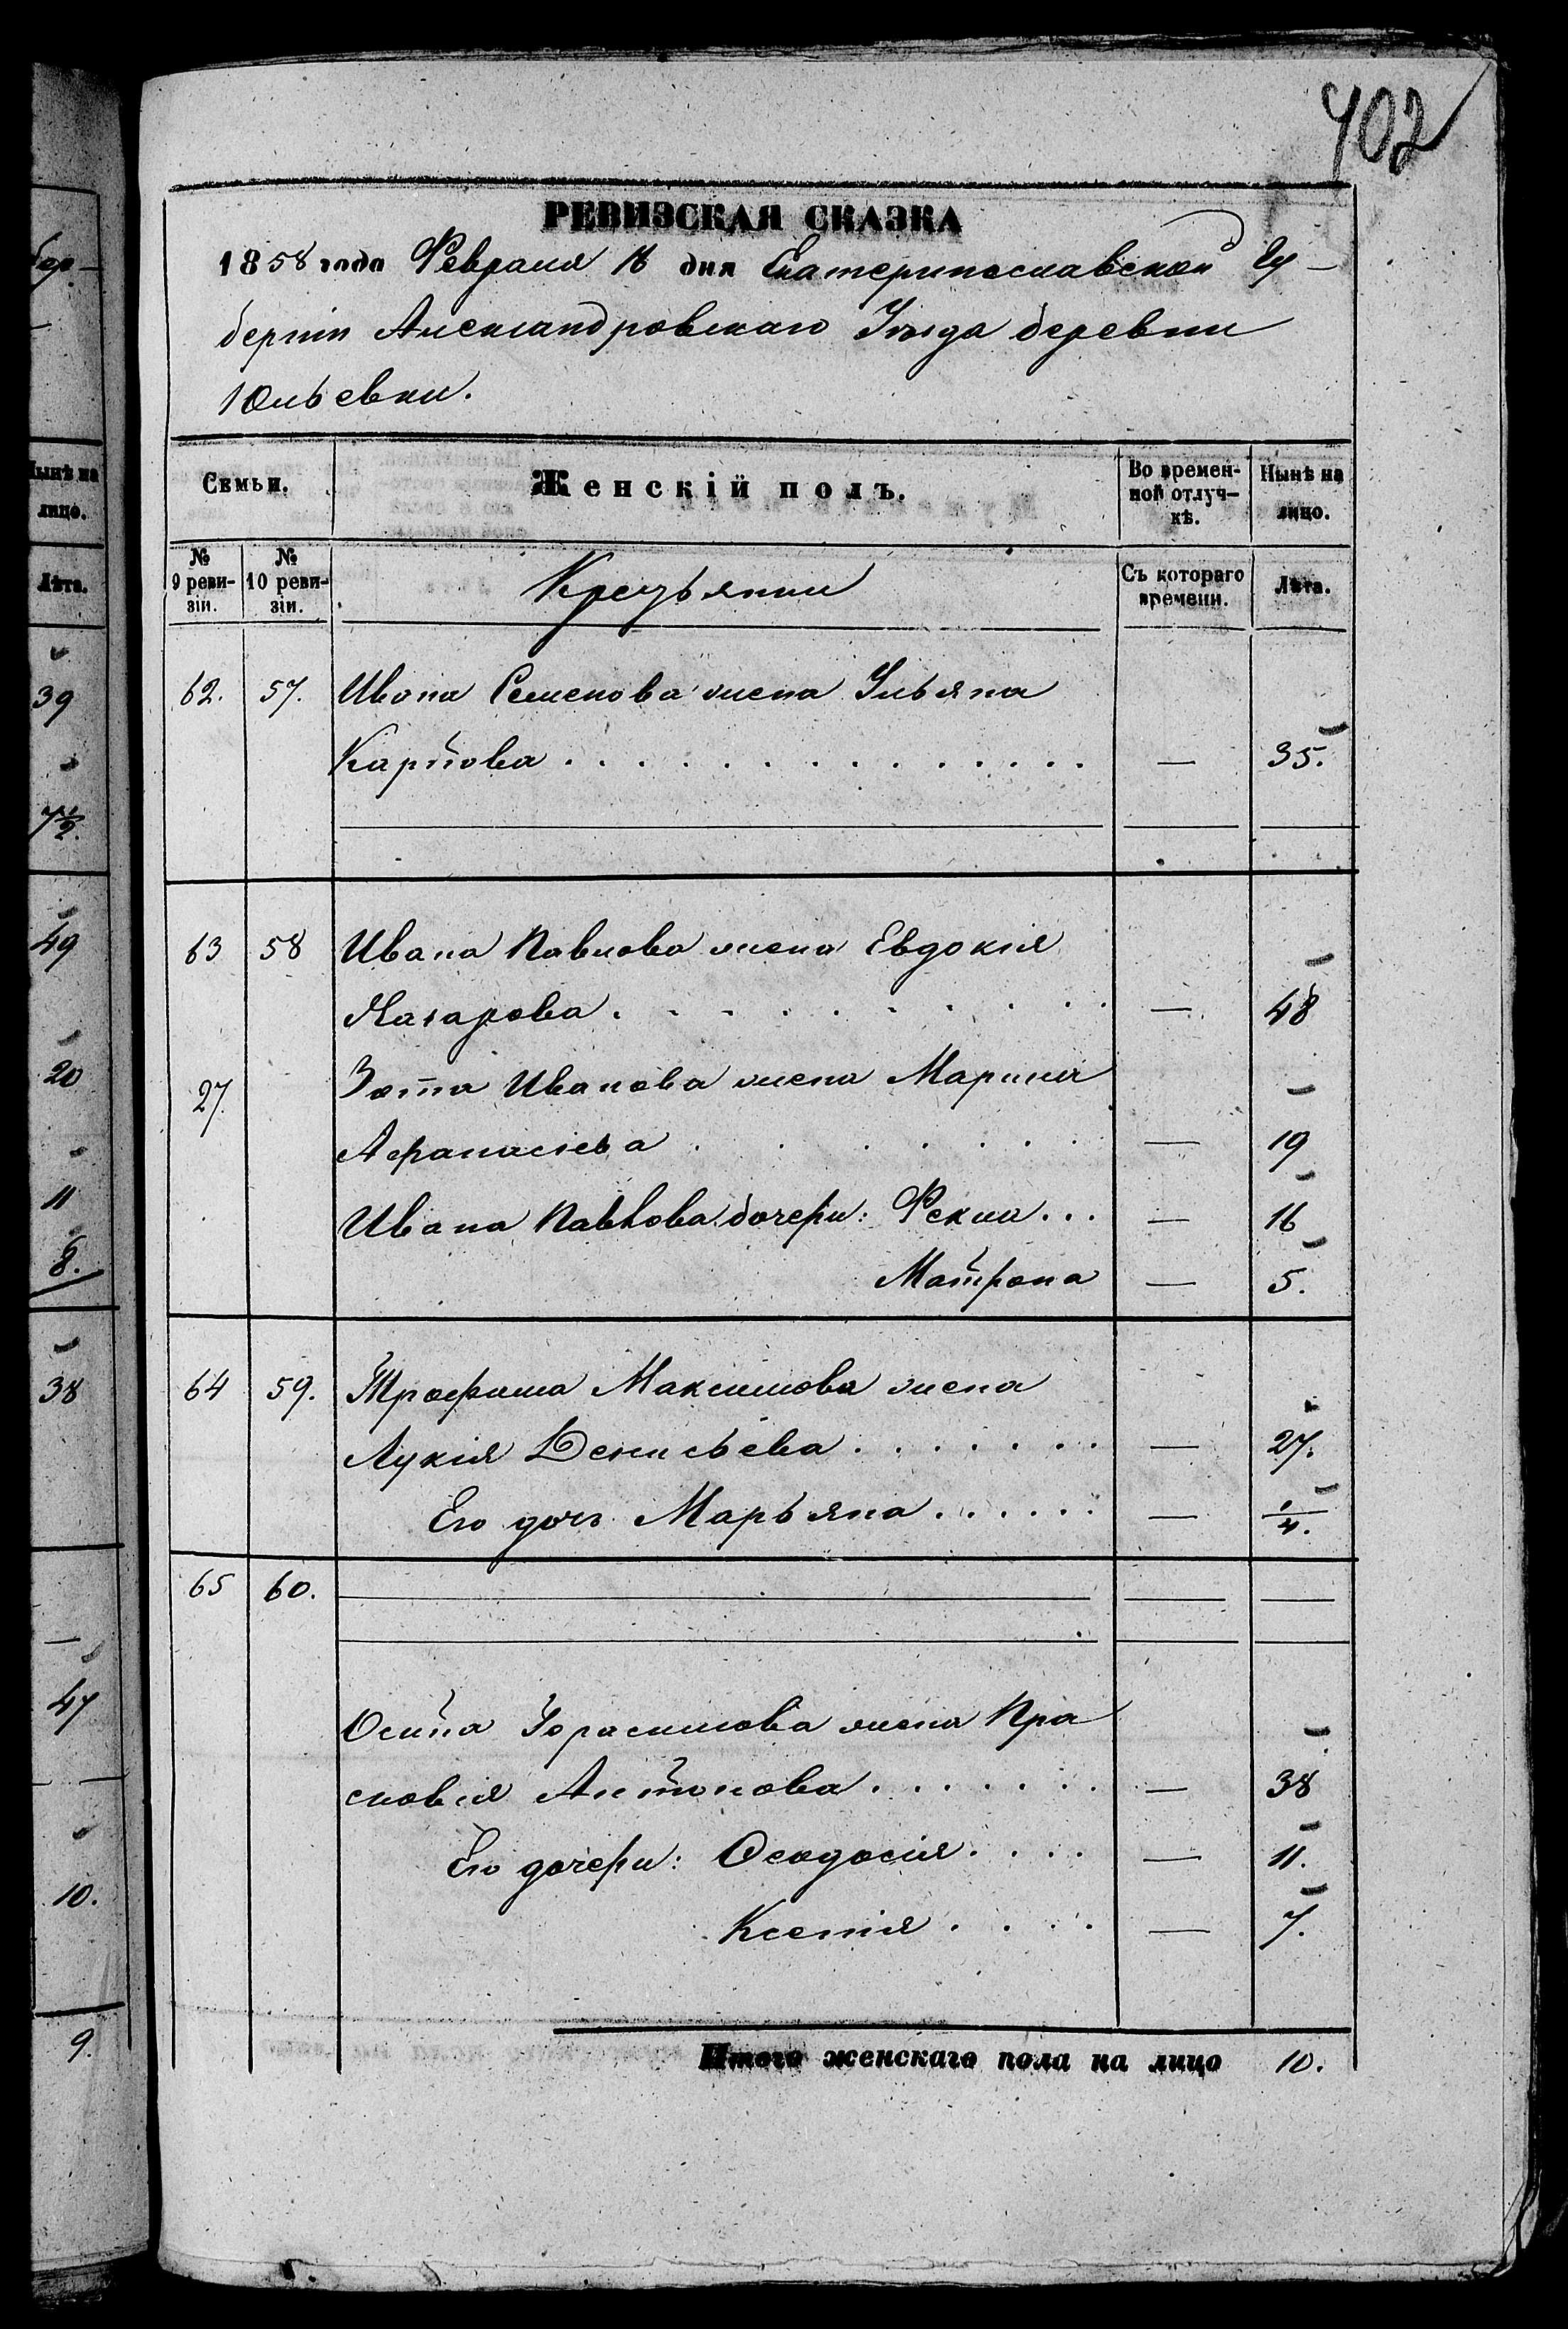 402
РЕВИЗСКАЯ СКАЗКА
1858 года Февраля 18 дня Екатеринославской Гу-
берніи Александровскаго Уѣзда деревни
Юльевки.
Семьи. Женскій полъ. Во времен- Нынѣ на
ной отлуч- лицо.
кѣ.
№ № Крестьянки Съ котораго Лѣта.
9 реви- 10 реви- времени.
зіи. зіи.
62. 57. Ивана Семенова жена Ульяна
Карпова — 35.
63 58 Ивана Павлова жена Евдокія
Назарова — 48
27. Зота Иванова жена Марина
Афанасіева — 19
Ивана Павлова дочери: Фекла — 16
Матрона — 5.
64 59. Трофима Максимова жена
Лукія Денисьева — 27.
Его дочь Марьяна — 1/4.
65 60.
Осипа Герасимова жена Пра
сковія Антонова — 38
Его дочери: Ѳеодосія — 11.
Ксенія — 7.
Итого женскаго пола на лицо 10.
Нынѣ на
лицо.
Лѣта.
39
7 1/2.
49
20
11
8.
38
47
10.
9.